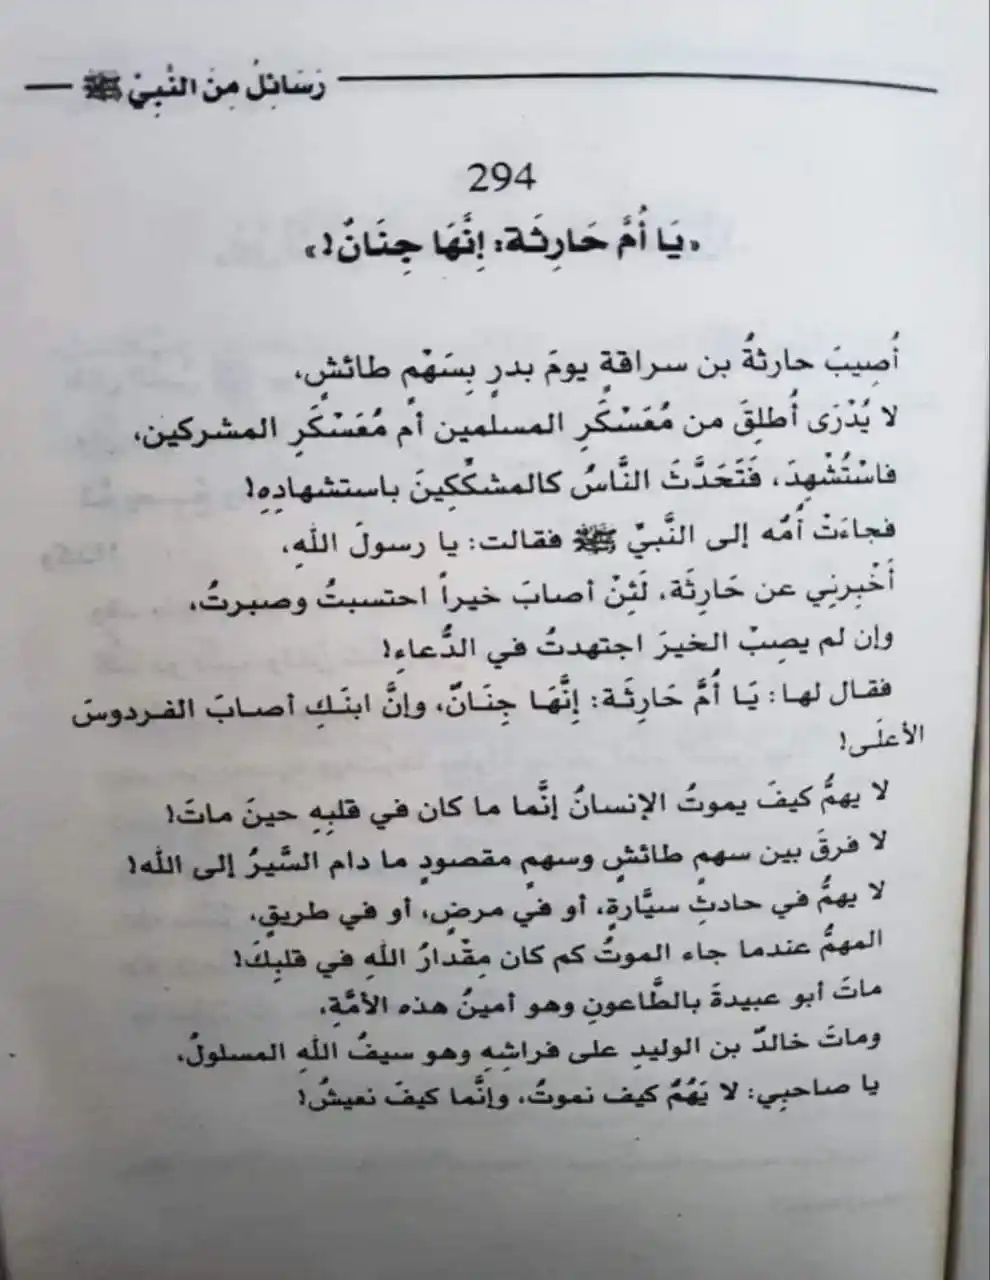 رَسَائِلُ مِنَ النَّبِيِّ ﷺ
294
«يَا أُمَّ حَارِثَة: إِنَّهَا جِنَانٌ!»
أُصِيبَ حارثةُ بن سراقةٍ يومَ بدرٍ بِسَهْمٍ طائشٍ،
لا يُدْرَى أُطلِقَ من مُعَسْكَرِ المسلمين أم مُعَسْكَرِ المشركين،
فاسْتُشْهِدَ، فَتَحَدَّثَ النَّاسُ كالمشكِّكِينَ باستشهادِهِ!
فجاءَتْ أمُّه إلى النَّبيِّ ﷺ فقالت: يا رسولَ اللهِ،
أَخْبِرنِي عن حَارِثَة، لَئِنْ أصابَ خيراً احتسبتُ وصبرتُ،
وإن لم يصِبْ الخيرَ اجتهدتُ في الدُّعاءِ!
فقال لها: يَا أُمَّ حَارِثَة: إِنَّهَا جِنَانٌ، وإنَّ ابنَكِ أصابَ الفردوسَ
الأعلَى!
لا يهمُّ كيفَ يموتُ الإنسانُ إنَّما ما كان في قلبِهِ حينَ ماتَ!
لا فرقَ بين سهمٍ طائشٍ وسهمٍ مقصودٍ ما دام السَّيرُ إلى اللهِ!
لا يهمُّ في حادثِ سيَّارةٍ، أو في مرضٍ، أو في طريقٍ،
المهمُّ عندما جاء الموتُ كم كان مِقْدارُ اللهِ في قلبِكَ!
ماتَ أبو عبيدةَ بالطَّاعونِ وهو أمينُ هذه الأمَّةِ،
وماتَ خالدٌ بن الوليدِ على فراشِهِ وهو سيفُ اللهِ المسلولُ،
يا صاحبِي: لا يَهُمُّ كيف نموتُ، وإنَّما كيفَ نعيشُ!